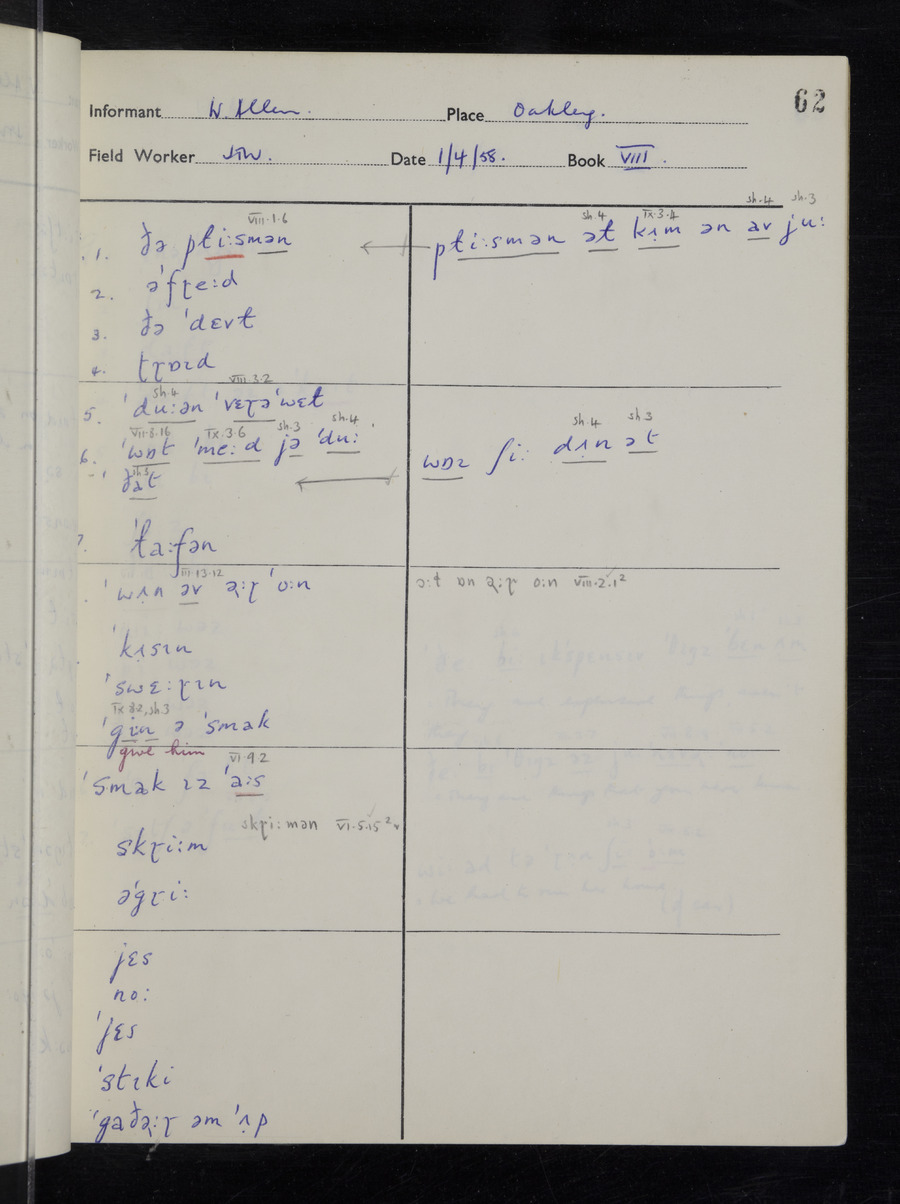 62
Informant W. Allen. Place Oakley.
Field Worker Date 1/4/58. Book VIII.
VIII.1.6
1. ðə pɫi:smən
sh.4 IX.3.4 sh.4 sh.3
pɫi:smən əɫ kɪ̣m ən av ju:
2. əˈfɽe:d
3. ðə ˈdɛvɫ
4. tɽɒɪd
sh.4 VIII.3.2
5. ˈdu:ən ˈvɛɽəˈwɛɫ
VII.8.16 IX.3.6 sh.3 sh.4
6. ˈwɒt ˈme:d jə ˈdu:
sh.3
ðat
sh.4 sh3
wɒz ʃi: dʌn ət
7. ˈɫa:fən
III.13.12
ˈwʌn əv ə:ɽ ˈo:n
ɔ:ɫ ɒn ə:ɽ o:n VIII.2.1²
ˈkɪsɪn
ˈswɛ:ɽɪn
IX.8.2, sh.3
ˈgɪn ə ˈsmak
give him
VI.9.2
ˈsmak ɪz ˈa:s
skɽi:mən VI.5.15²
skɽi:m
əˈgɽi:
jɛs
no:
ˈjɛs
ˈstɪki
ˈgaðə:ɽ əm ˈʌp